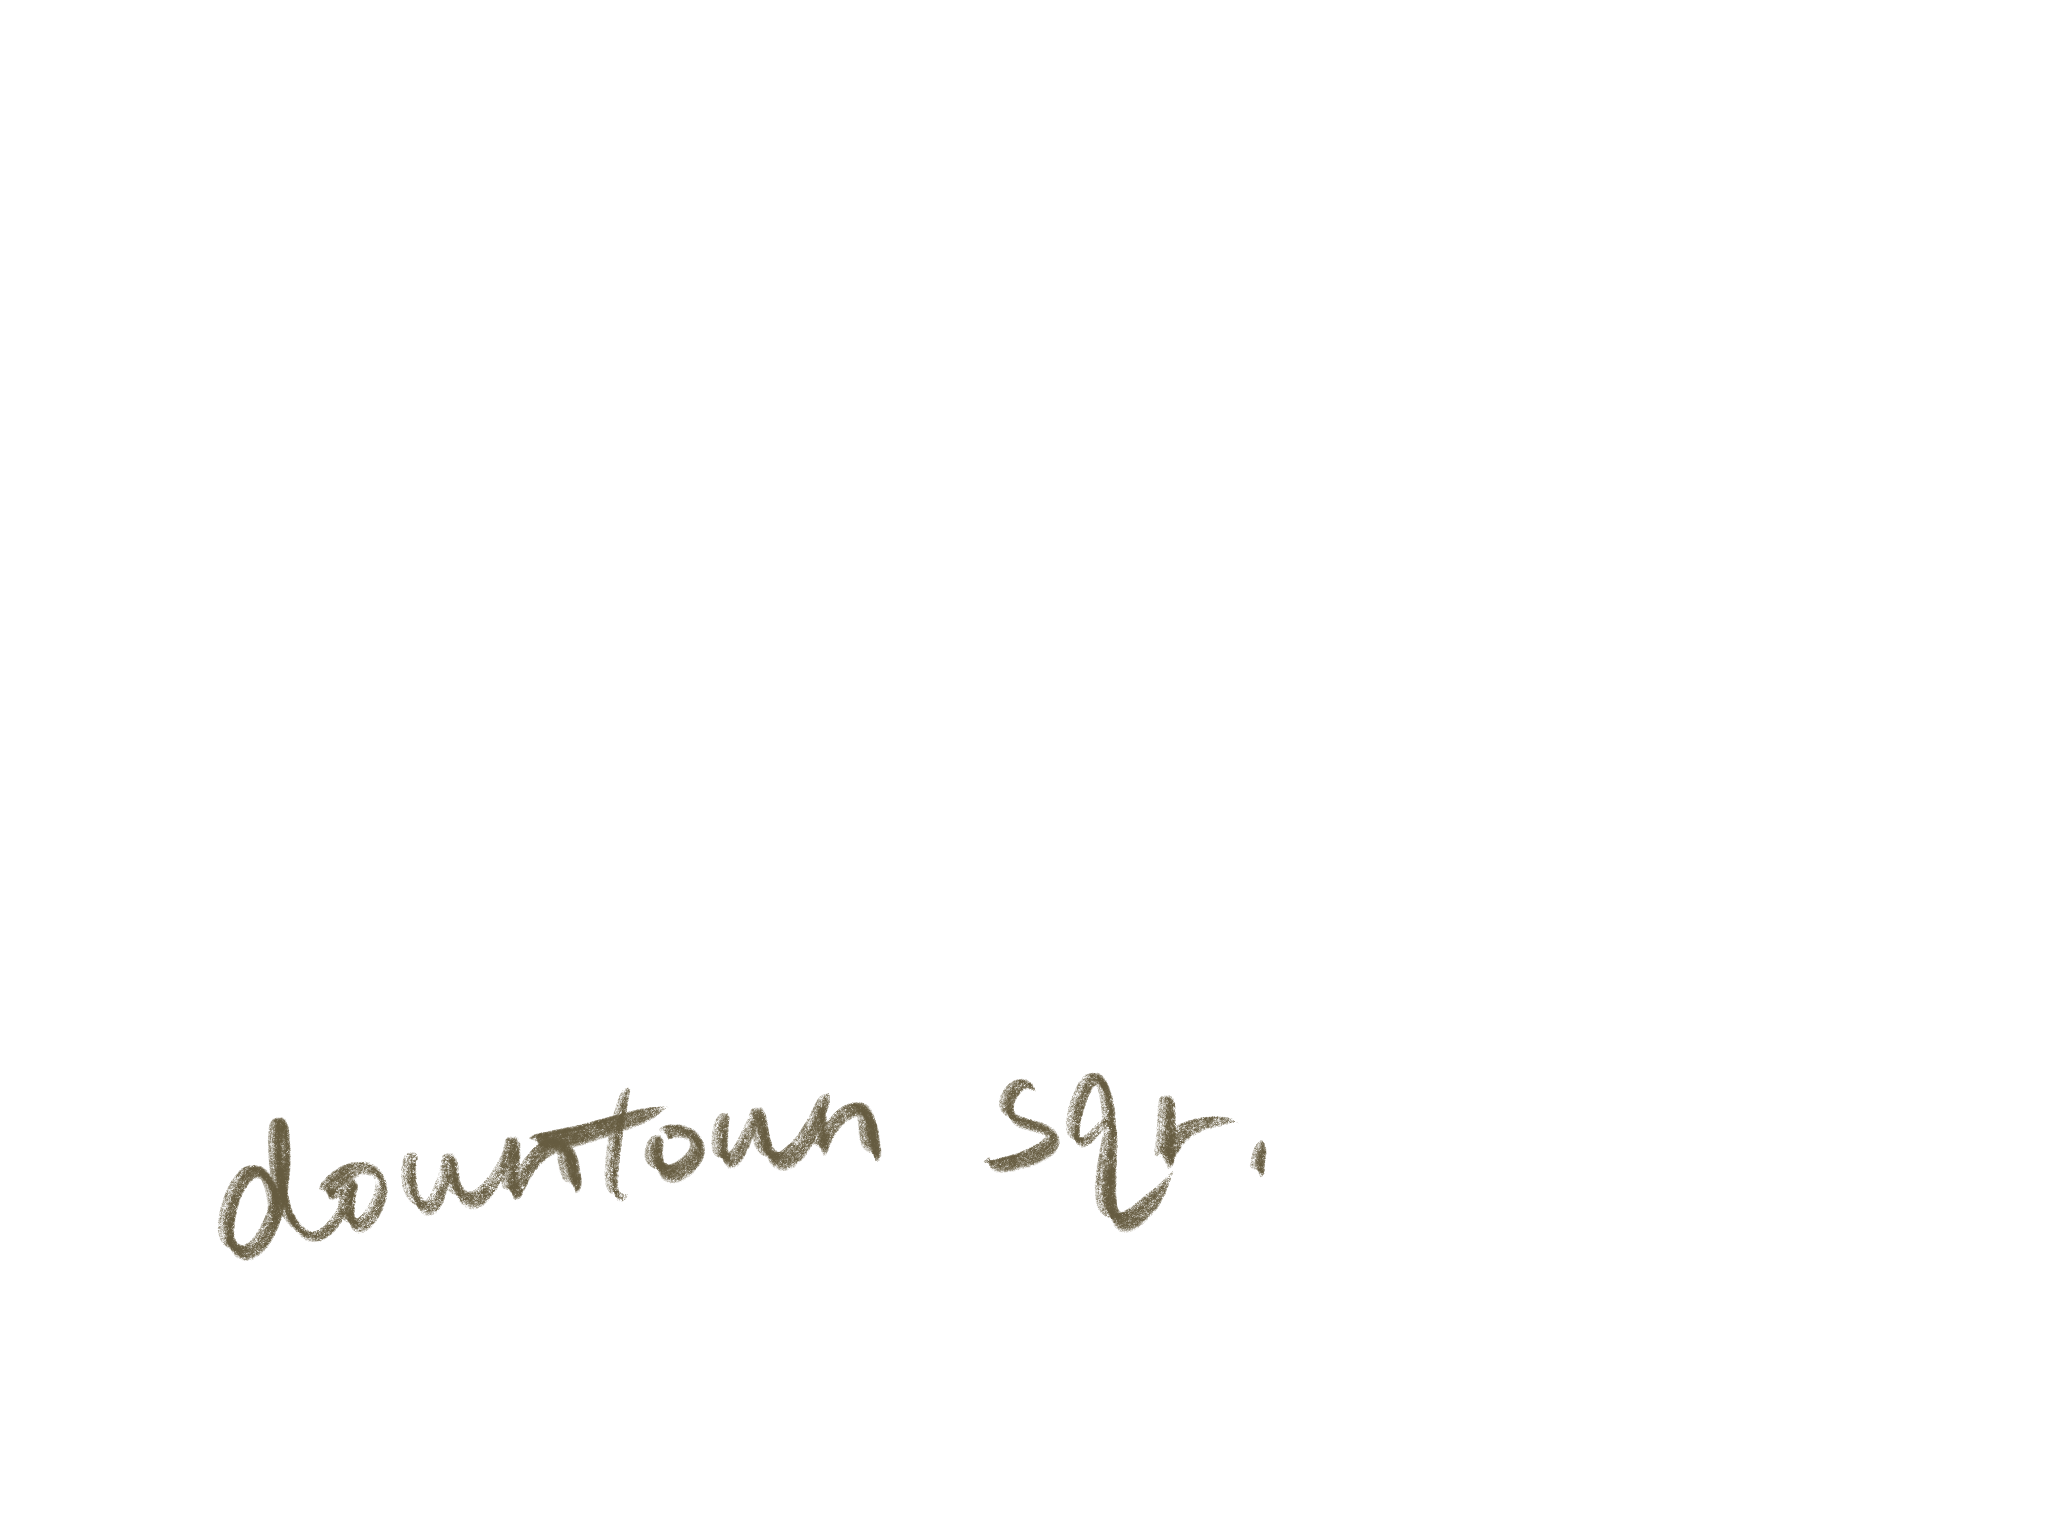 downtown sqr.